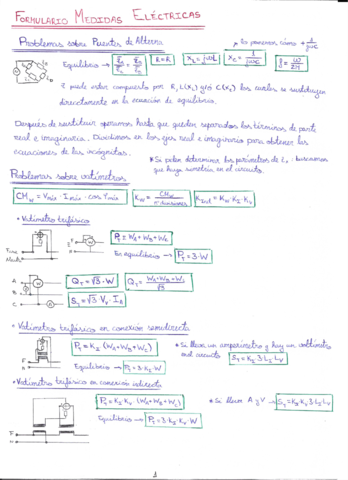 FORMULARIO MEDIDAS ELÉCTRICAS
Problemas sobre Puentes de Alterna
Equilibrio →
R = R
X_L = jωL
X_C = 1/jωC
f = ω/2π
Z puede estar compuesto por R, L(X_L) y/o C(X_C) los cuales se sustituyen
directamente en la ecuación de equilibrio.
Después de sustituir operamos hasta que queden separados los términos de parte
real e imaginaria. Dividimos en los ejes real e imaginario para obtener las
ecuaciones de las incógnitas.
* Si piden determinar los parámetros de L, buscamos
que haya simetría en el circuito.
Problemas sobre vatímetros
• Vatímetro trifásico
P_T = W_A + W_B + W_C
En equilibrio → P_T = 3·W
Q_T = √3·W
S_T = √3·V_L·I_A
• Vatímetro trifásico en conexión semidirecta
P_T = K_I (W_A + W_B + W_C)
Equilibrio → P_T = 3·K_I·W
* Si llevan un amperímetro y hay un voltímetro
en el circuito
• Vatímetro trifásico en conexión indirecta
P_T = K_I·K_V (W_A + W_B + W_C)
Equilibrio → P_T = 3·K_I·K_V·W
* Si llevan A y V →
1